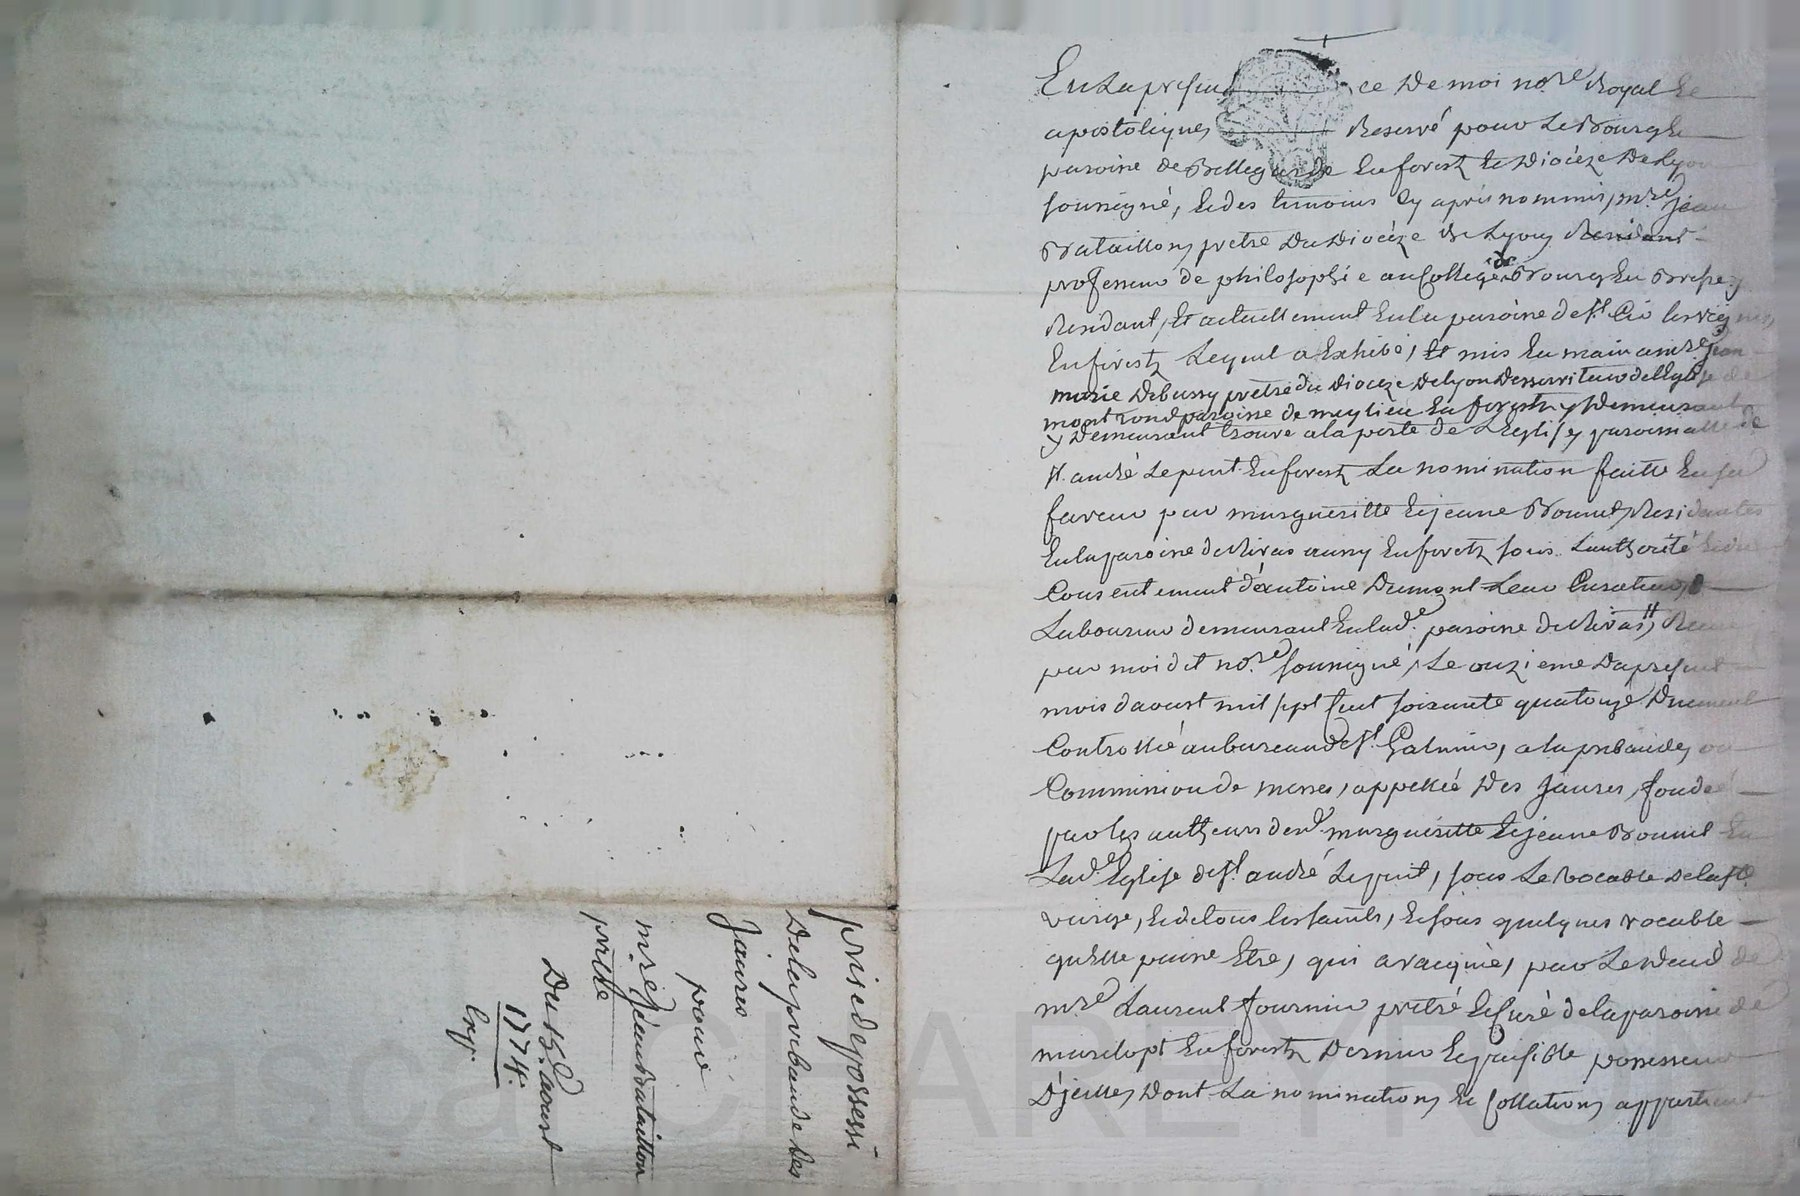 En La presen ce De moi no.re Royal Et
apostolique, Reservé pour Le Bourg Et
paroisse de Bellegarde En forestz Et Dioceze De Lyon
soussigné, Et des temoins Cy aprés nommés, m.re Jean
Bataillon, pretre Du Dioceze De Lyon Residant
professeur de philosophie au College de Bourg En Bresse y
Residant, Et actuellement En la paroisse de st. Cir les vignes,
En forestz Lequel a Exhibé, Et mis En main a m.re Jean
marie Debussy pretre du Dioceze De lyon Desserviteur de l'Eglise de
montrond paroisse de meylieu En forestz y Demeurant
y Demeurant trouvé a la porte de L'Eglise, paroissialle de
st. andré Le puit En forestz La nomination faitte En sa
faveur par margueritte Et jeanne Bonnet, Residantes
En la paroisse de Rivas aussy En foretz sous L'authorité Et du
Consentement d'antoine Dumont Leur Curateur,
Laboureur demeurant En lad.e paroisse de Rivas, Recue
par moi dit no.re soussigné, Le onzieme Du present
mois d'aoust mil sept Cent soixante quatorze Duement
Controllé au bureau de st. Galmier, a la prebande, ou
Commission de messes, appellée Des Jauses, fondée
par les autheurs desd. margueritte Et jeanne Bonnet En
Lad.e Eglise de st. andré Le puit, sous Le vocable De la ste.
vierge, Et de tous les saints, Et sous quelques vocable
qu'Elle puisse Etre, qui a vacquée, par Le deced de
m.re Laurent fournier pretre Et Curé de la paroisse de
marclopt En forestz Dernier Et paisible possesseur
D'jcelle, Dont La nomination, Et Collation, appartient
prise de possessi
De la prebande Des
Jauses
pour
m.re Jean Bataillon
pretre
Du 15.e aoust
1774.
Exp.
CHAREYRON